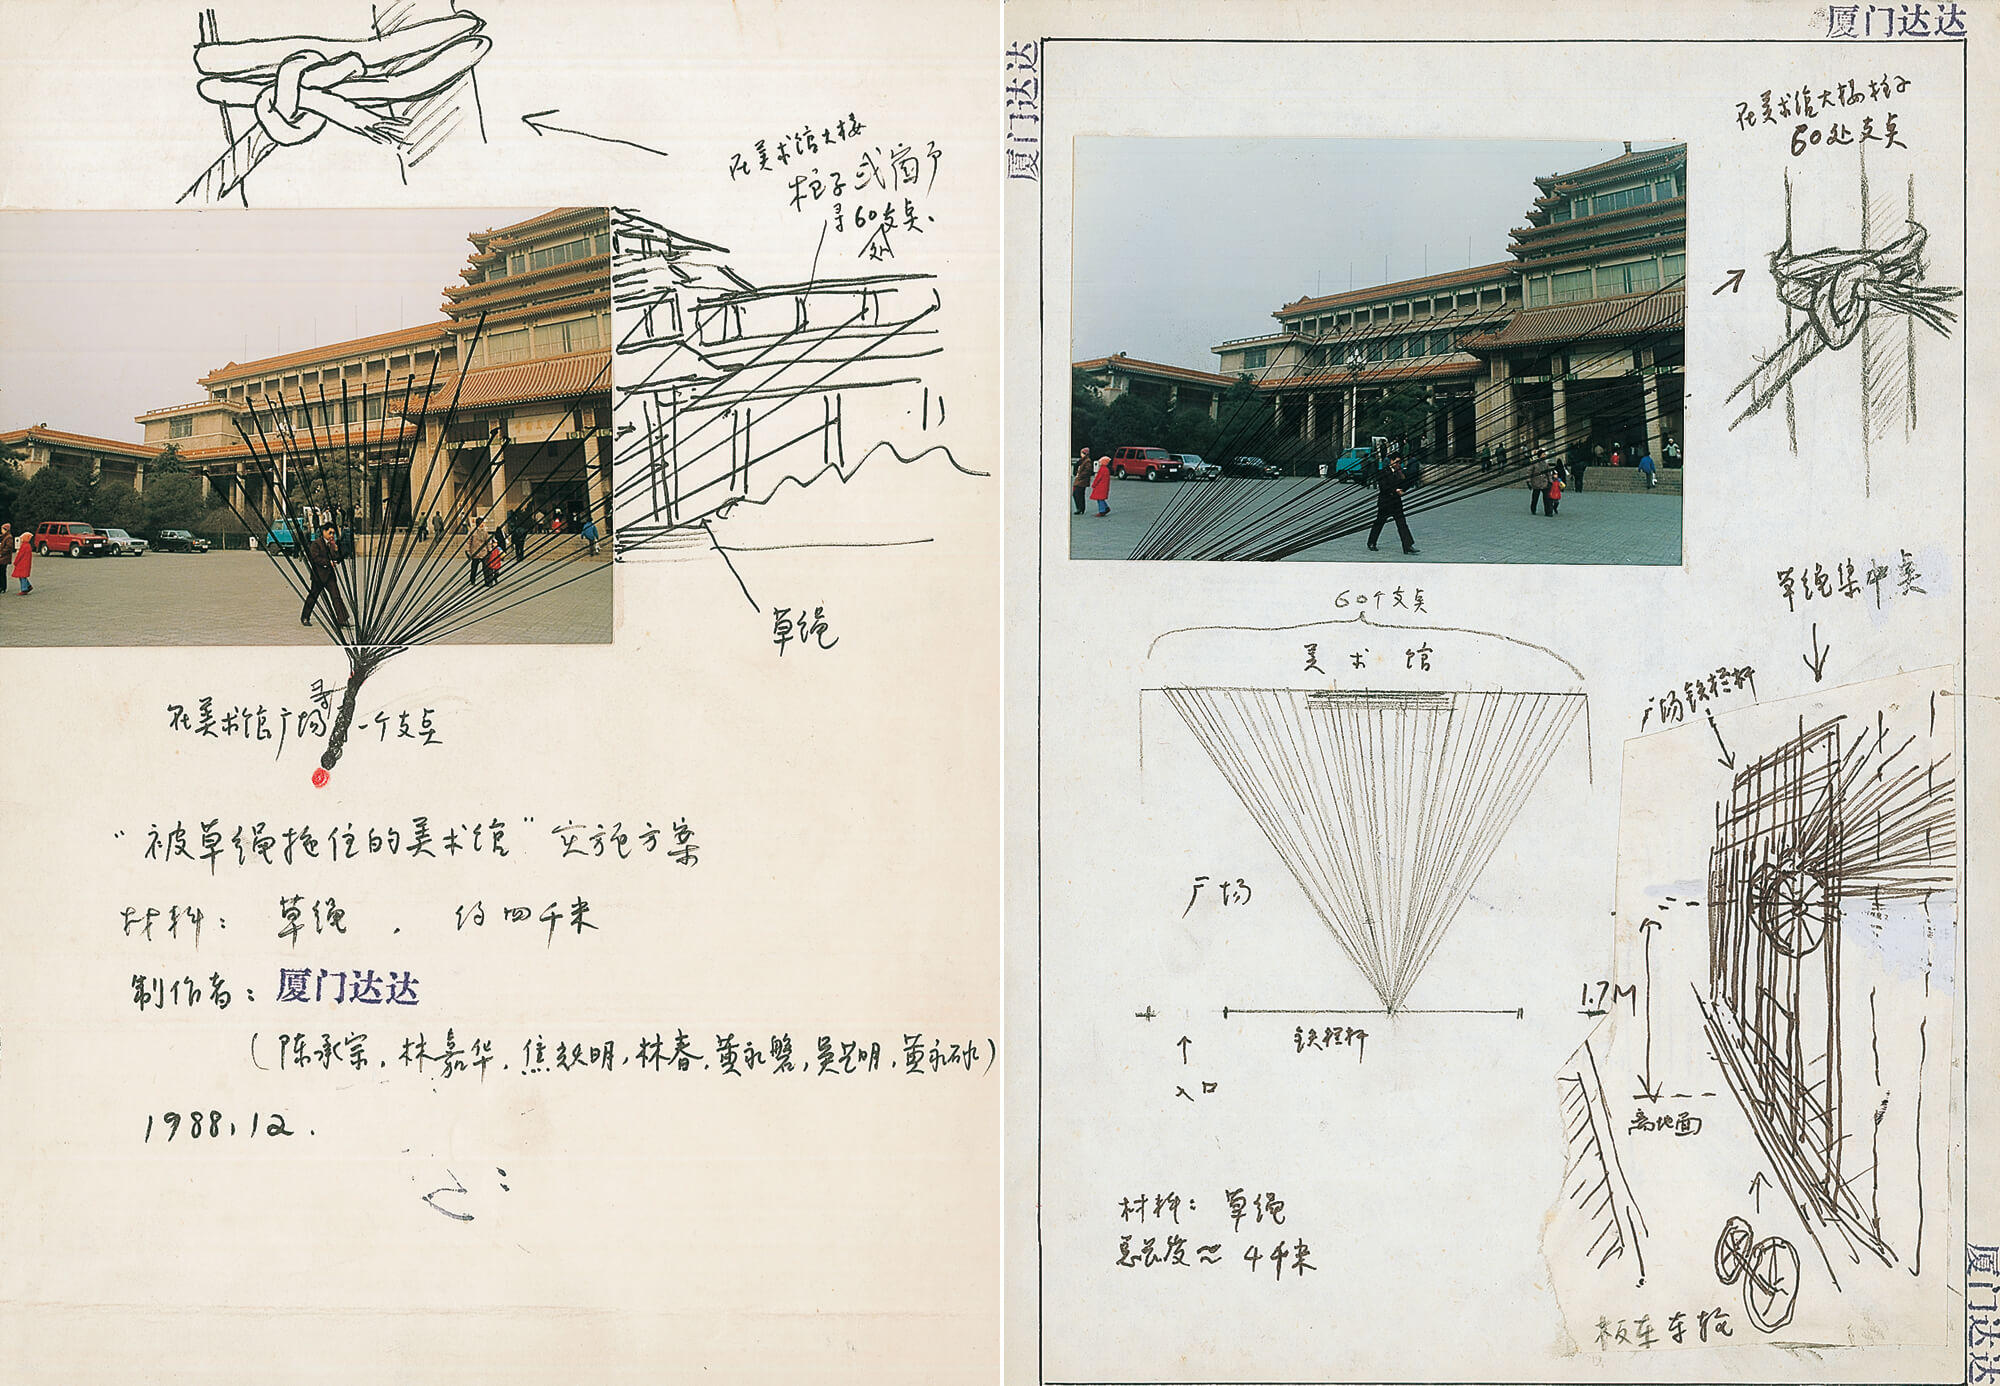 在美术馆大楼
柱子或窗户
寻60支点、
处
草绳
寻
在美术馆广场一个支点
“被草绳拖住的美术馆”实施方案
材料：草绳，约四千米
制作者：厦门达达
（陈承宗，林嘉华，焦耀明，林春，黄永磐，吴艺明，黄永砯）
1988.12.
厦门达达
厦门达达
在美术馆大楼柱子
60处支点
60个支点
美术馆
草绳集中点
广场铁栏杆
广场
1.7M
铁栏杆
入口
离地面
材料：草绳
总长度≈4千米
板车车轮
厦门达达